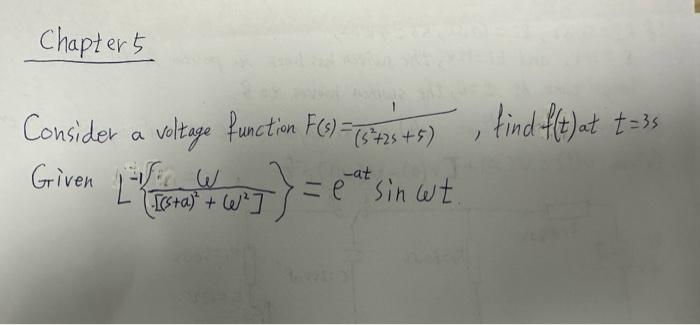 Chapter 5
Consider a voltage function F(s)=1/(s²+2s+5) , find f(t) at t=3s
Given L⁻¹{ω/[(s+a)²+ω²]} = e⁻ᵃᵗ sin ωt.